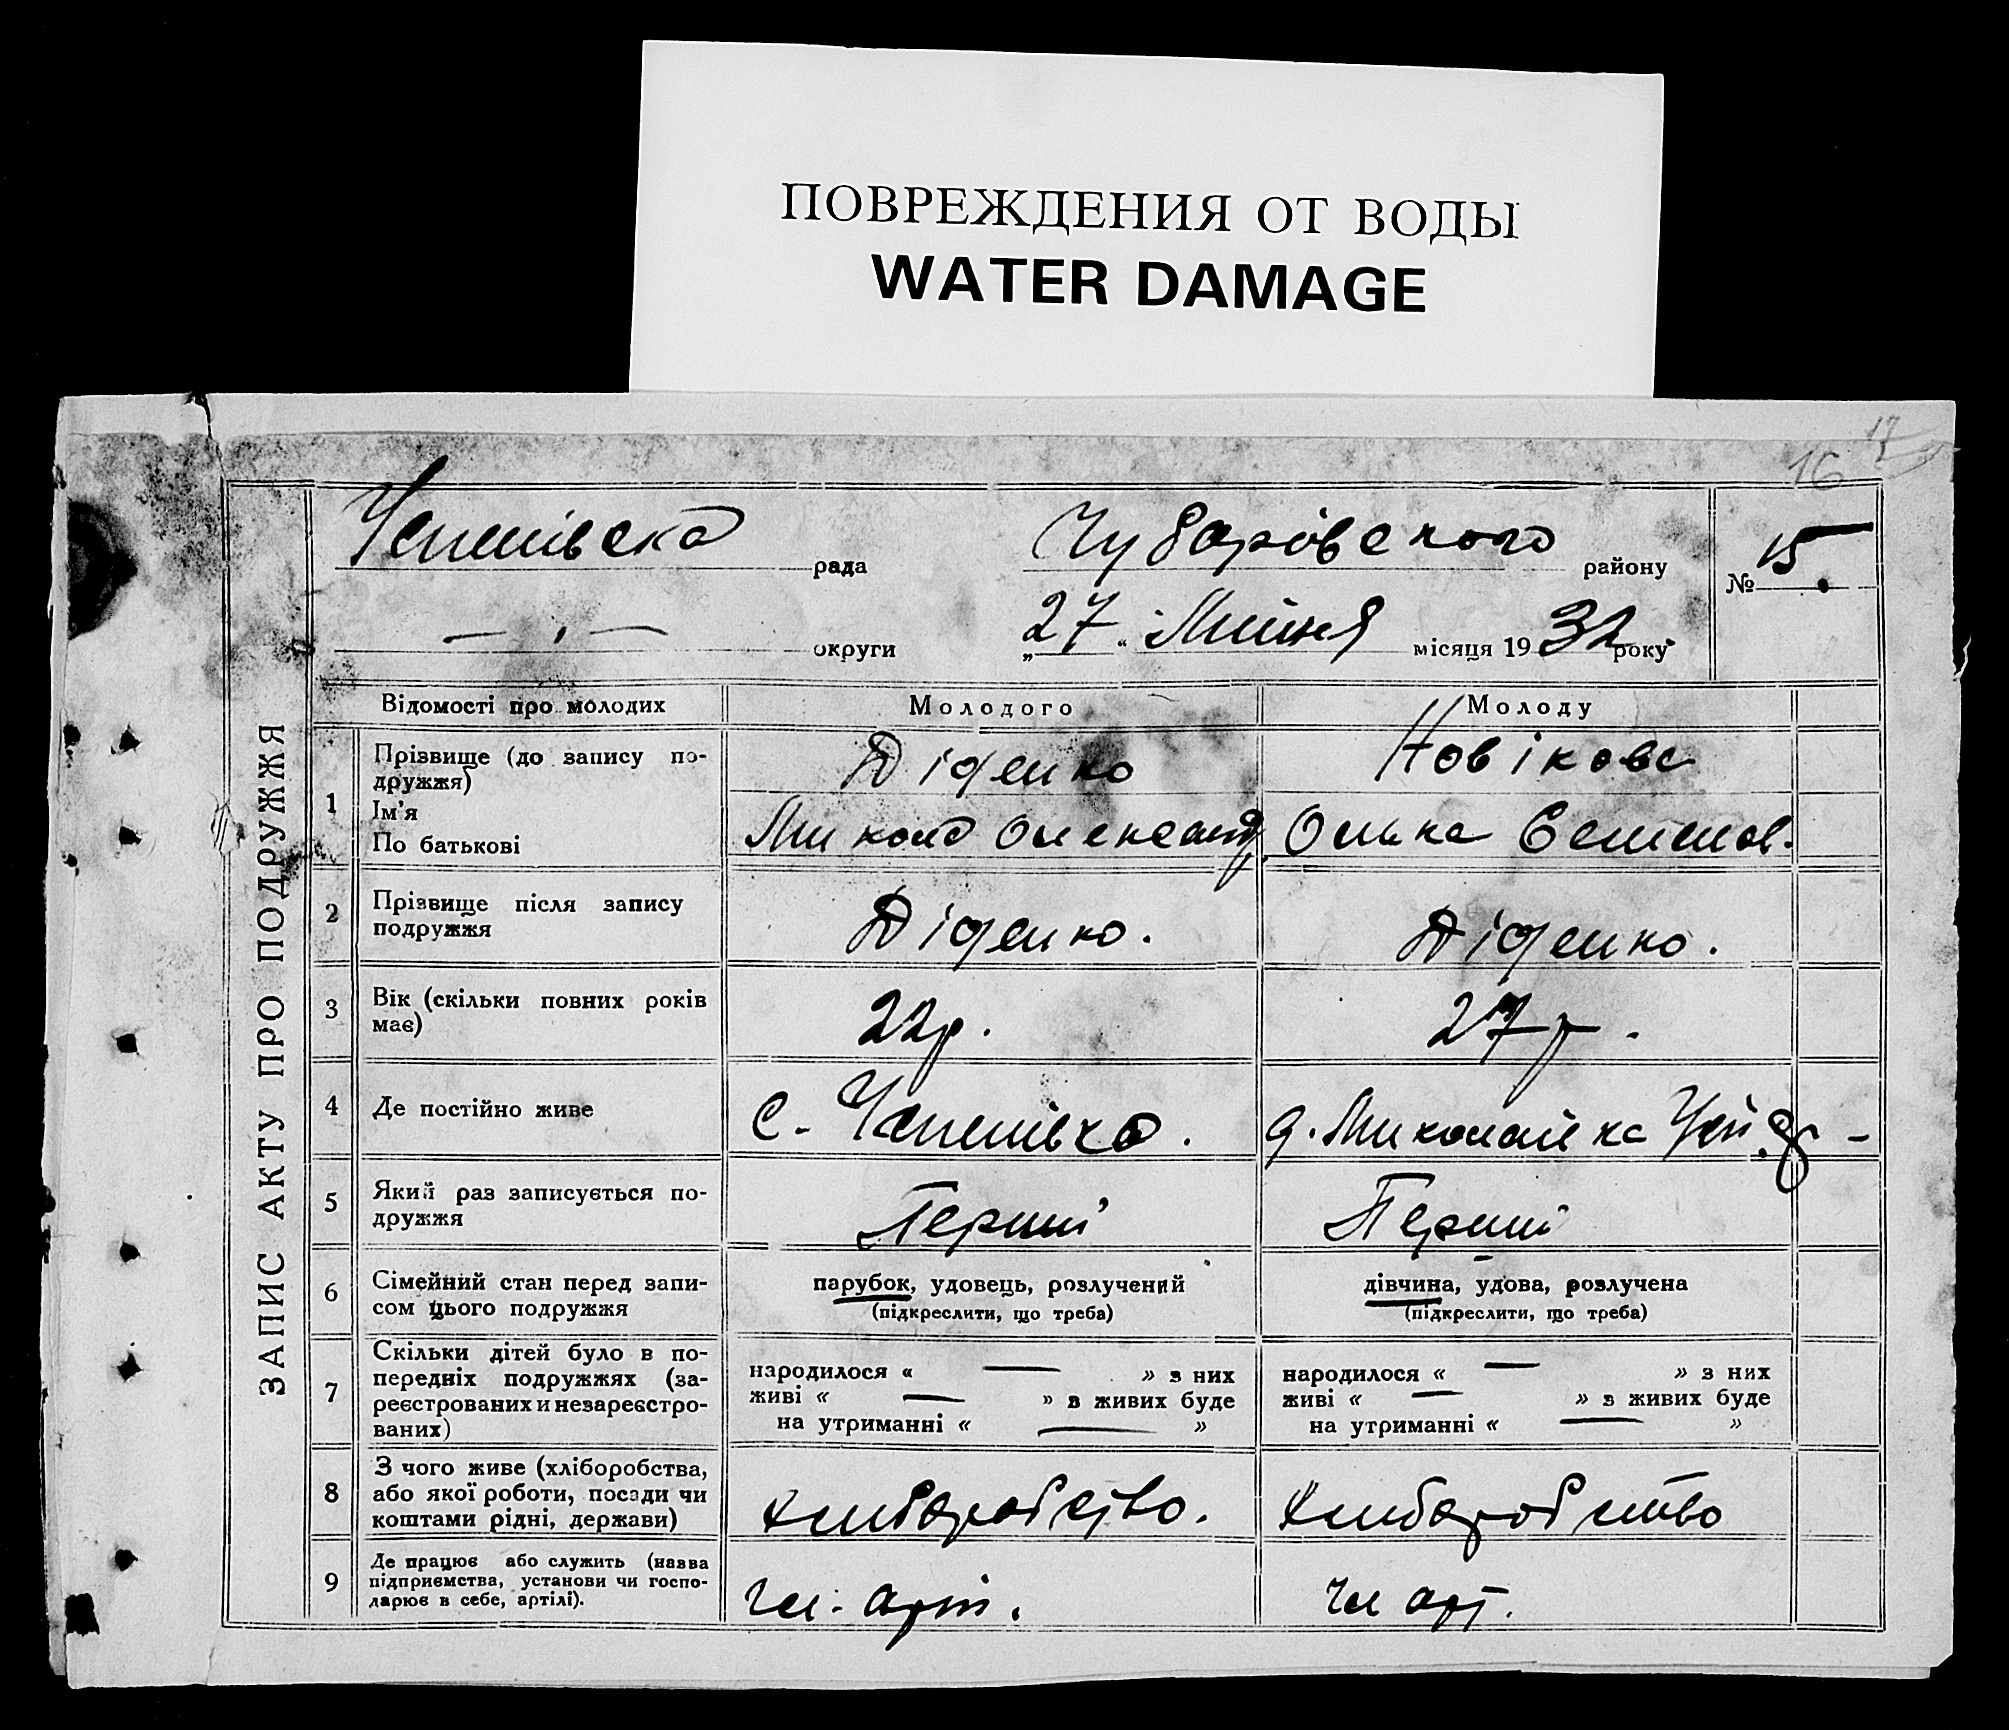 ПОВРЕЖДЕНИЯ ОТ ВОДЫ
WATER DAMAGE
17
16
рада Чубарівського району № 15.
— „ — округи „27“ Липня місяця 1932 року
ЗАПИС АКТУ ПРО ПОДРУЖЖЯ
Відомості про молодих Молодого Молоду
1 Прізвище (до запису по-
дружжя)
Ім'я
По батькові
Діденко
Микола Олександр.
Новікова
Олька Семенов.
2 Прізвище після запису
подружжя
Діденко.
Діденко.
3 Вік (скільки повних років
має)
22р.
27р.
4 Де постійно живе
с.
д. Миколаївка
5 Який раз записується по-
дружжя
Перший
Перший
6 Сімейний стан перед запи-
сом цього подружжя
парубок, удовець, розлучений
(підкреслити, що треба)
дівчина, удова, розлучена
(підкреслити, що треба)
7 Скільки дітей було в по-
передніх подружжях (за-
реєстрованих и незареєстро-
ваних)
народилося « — » з них
живі « — » з живих буде
на утриманні « — »
народилося « — » з них
живі « — » з живих буде
на утриманні « — »
8 З чого живе (хліборобства,
або якої роботи, посади чи
коштами рідні, держави)
хліборобство.
хліборобство
9 Де працює або служить (назва
підприємства, установи чи госпо-
дарює в себе, артілі).
чл. арт.
чл арт.